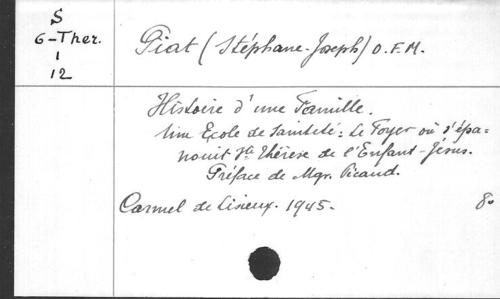 S
6-Ther.
1
12
Piat (Stéphane-Joseph) O.F.M.
Histoire d'une Famille.
Une Ecole de Sainteté: Le Foyer où s'épa=
nouit Ste Thérèse de l'Enfant-Jésus.
Préface de Mgr. Picaud.
Carmel de Lisieux. 1945. 8º